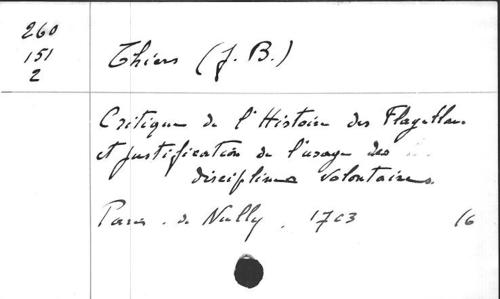 260
151
2
Thiers (J. B.)
Critique de l'Histoire des Flagellans
et justification de l'usage des
disciplines volontaires.
Paris. de Nully. 1703 16